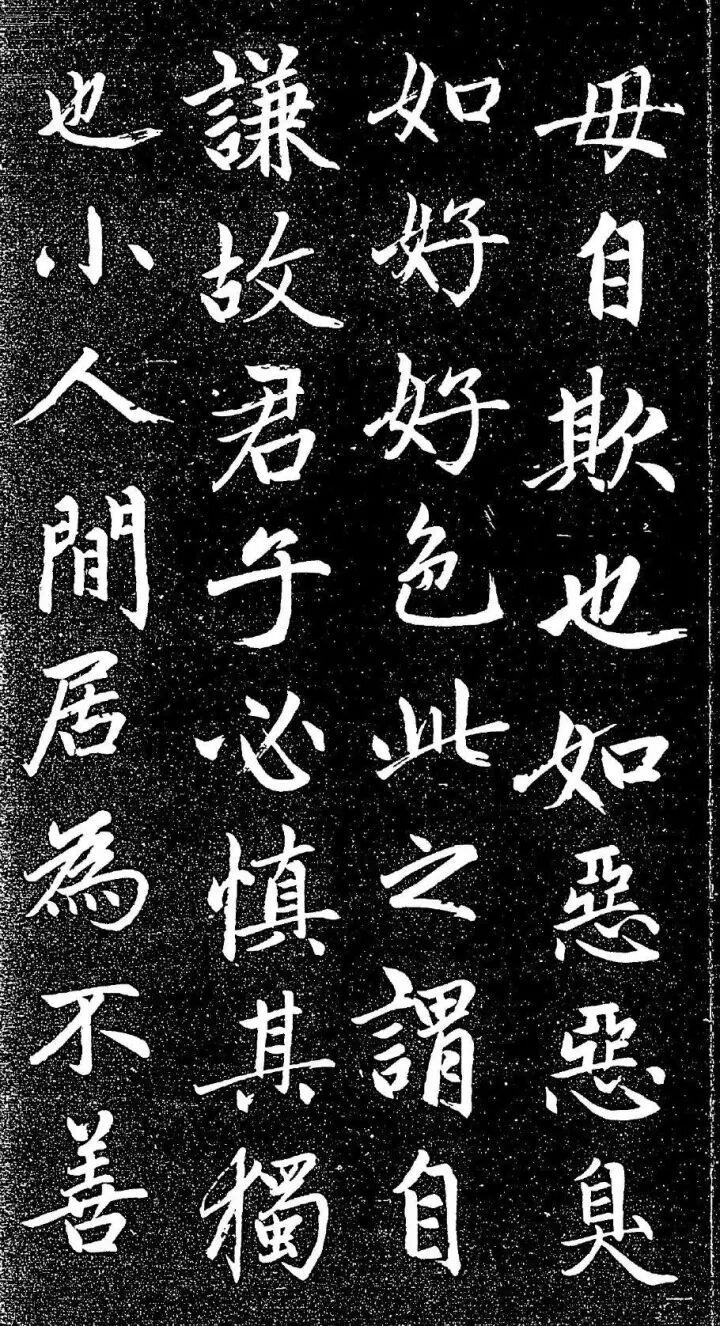 毋自欺也如惡惡臭
如好好色此之謂自
謙故君子必慎其獨
也小人閒居為不善